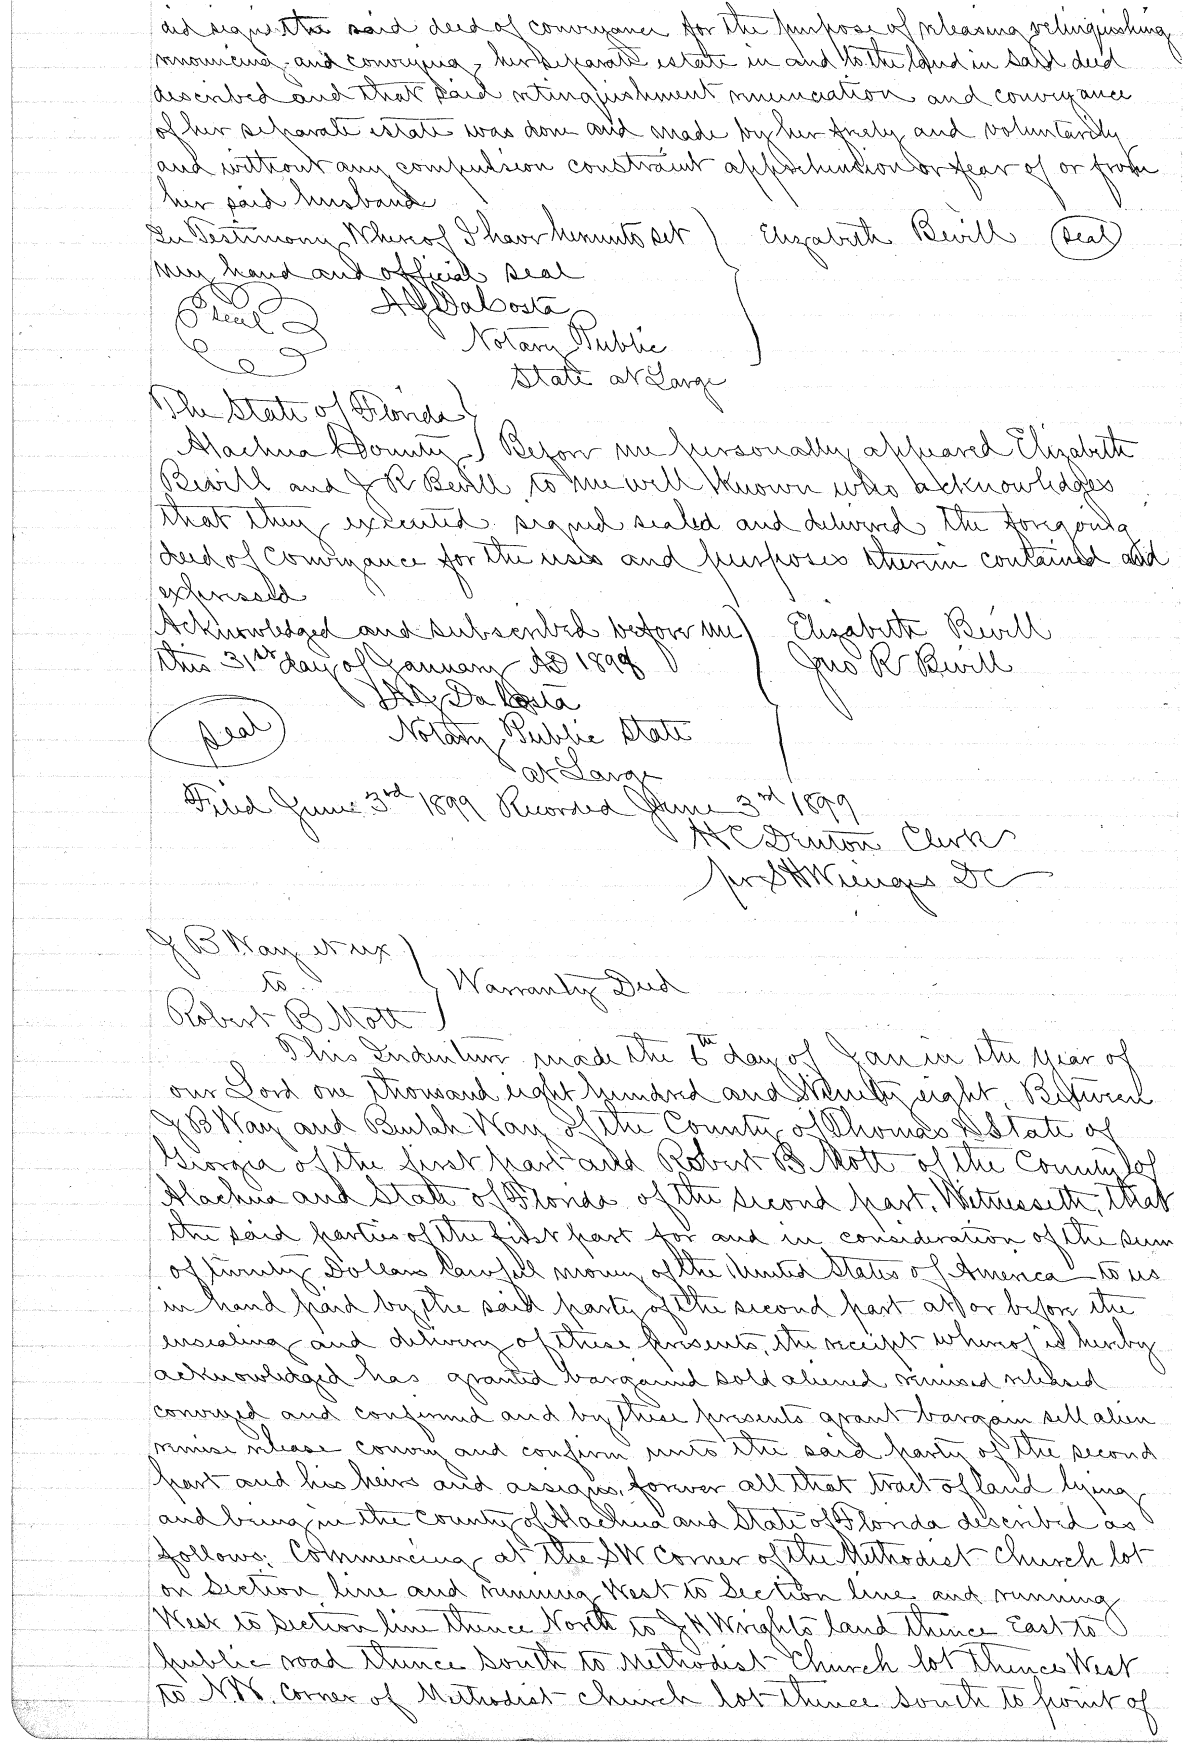 did sign the said deed of conveyance for the purpose of releasing relinquishing
renouncing and conveying her separate estate in and to the land in said deed
described and that said relinquishment renunciation and conveyance
of her separate estate was done and made by her freely and voluntarily
and without any compulsion constraint apprehension or fear of or from
her said husband
In Testimony Whereof I have hereunto set Elizabeth Bevill seal
my hand and official seal
seal A J DaCosta
Notary Public
State at Large
The State of Florida
Alachua County Before me personally appeared Elizabeth
Bevill and J R Bevill to me well known who acknowledges
that they executed signed sealed and delivered the foregoing
deed of conveyance for the uses and purposes therein contained and
expressed
Acknowledged and subscribed before me Elizabeth Bevill
this 31st day of January AD 1898 Jno R Bevill
A J DaCosta
seal Notary Public State
at Large
Filed June 3rd 1899 Recorded June 3rd 1899
H C Denton Clerk
per S H Wienges DC
J B Way et ux
to Warranty Deed
Robert B Mott
This Indenture made the 6th day of Jan in the year of
our Lord one thousand eight hundred and Ninety eight Between
J B Way and Beulah Way of the County of Thomas & State of
Georgia of the first part and Robert B Mott of the County of
Alachua and State of Florida of the second part, Witnesseth, that
the said parties of the first part for and in consideration of the sum
of twenty Dollars lawful money of the United States of America to us
in hand paid by the said party of the second part at or before the
ensealing and delivery of these presents, the receipt whereof is hereby
acknowledged has granted bargained sold aliened remised released
conveyed and confirmed and by these presents grant bargain sell alien
remise release convey and confirm unto the said party of the second
part and his heirs and assigns, forever all that tract of land lying
and being in the County of Alachua and State of Florida described as
follows; Commencing at the SW Corner of the Methodist Church lot
on Section line and running West to Section line and running
West to Section line thence North to J H Wrights land thence East to
public road thence South to Methodist Church lot thence West
to N.W. Corner of Methodist church lot thence south to point of